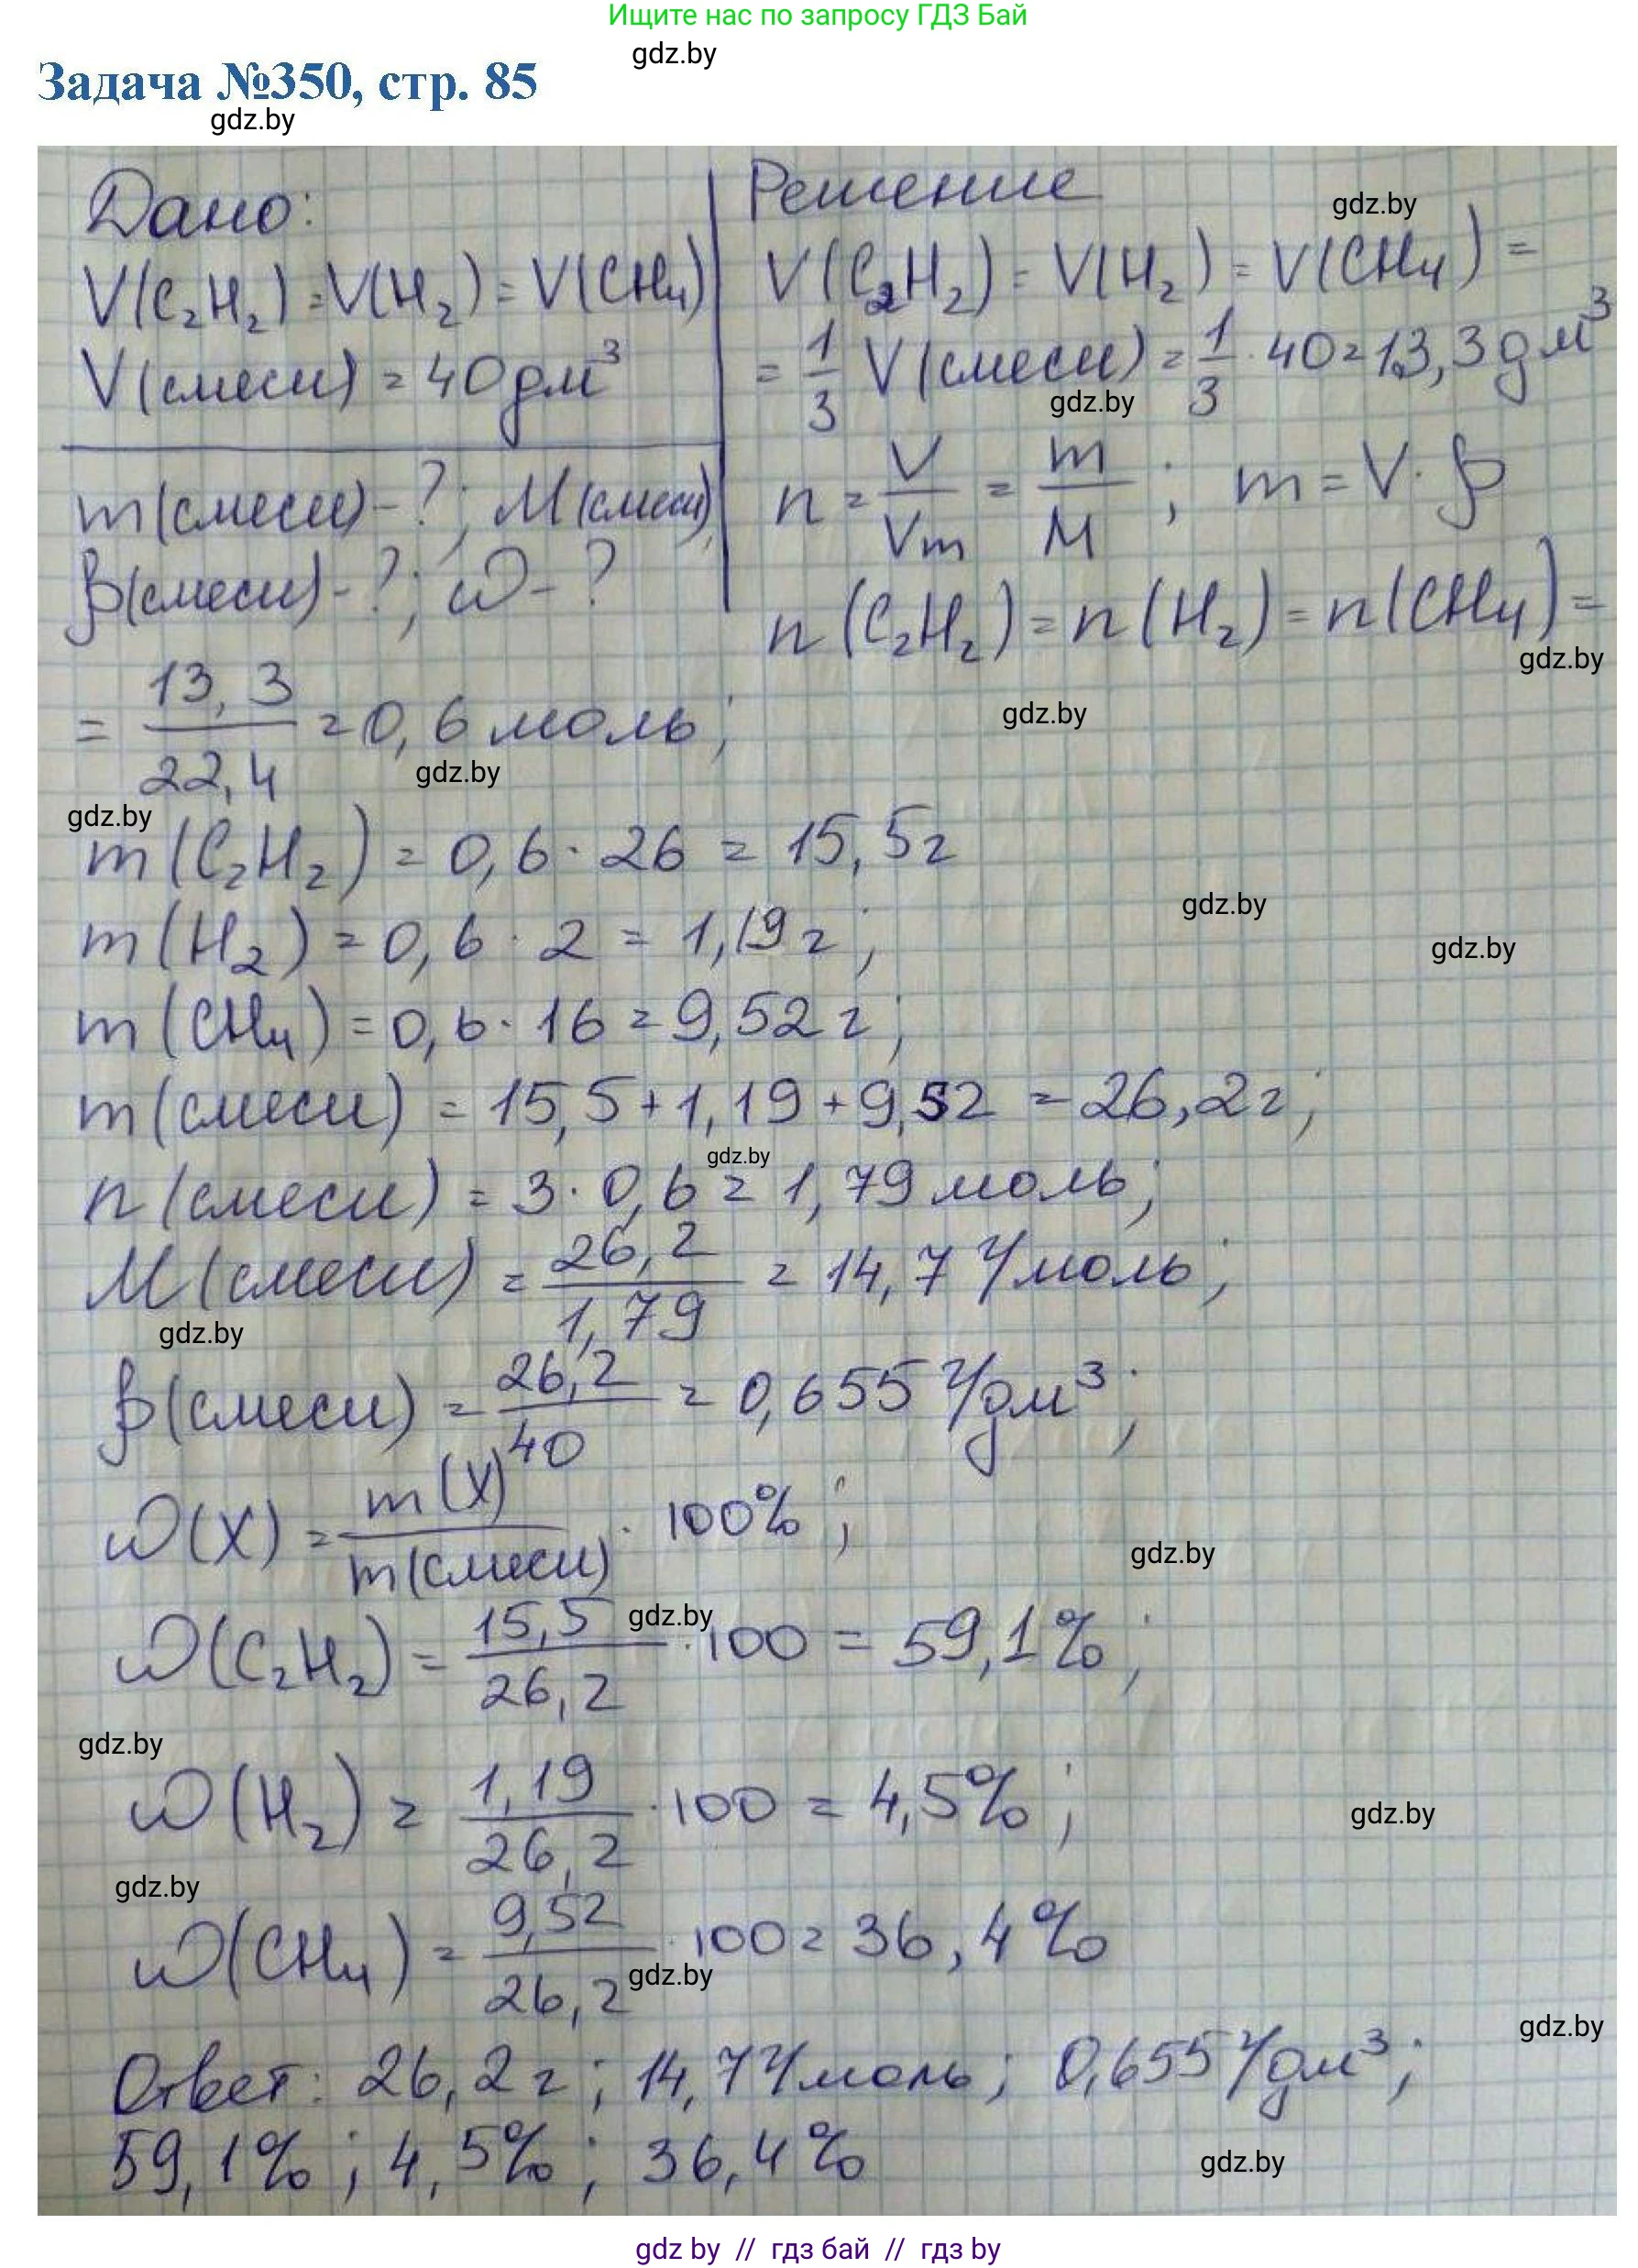 Ищите нас по запросу ГДЗ Бай
gdz.by
Задача №350, стр. 85
gdz.by
Дано:
V(C₂H₂) = V(H₂) = V(CH₄)
V(смеси) = 40 дм³
m(смеси) - ?; M(смеси),
ρ(смеси) - ?; ω - ?
Решение
gdz.by
V(C₂H₂) = V(H₂) = V(CH₄) =
= 1/3 V(смеси) = 1/3 · 40 = 13,3 дм³
gdz.by
n = V/Vm = m/M ; m = V · ρ
n(C₂H₂) = n(H₂) = n(CH₄) =
gdz.by
= 13,3/22,4 = 0,6 моль;
gdz.by
gdz.by
gdz.by
m(C₂H₂) = 0,6 · 26 = 15,5 г
gdz.by
m(H₂) = 0,6 · 2 = 1,19 г;
gdz.by
m(CH₄) = 0,6 · 16 = 9,52 г;
m(смеси) = 15,5 + 1,19 + 9,52 = 26,2 г;
gdz.by
n(смеси) = 3 · 0,6 = 1,79 моль;
M(смеси) = 26,2/1,79 = 14,7 г/моль;
gdz.by
ρ(смеси) = 26,2/40 = 0,655 г/дм³;
ω(X) = m(X)/m(смеси) · 100%;
gdz.by
ω(C₂H₂) = 15,5/26,2 · 100 = 59,1%;
gdz.by
gdz.by
ω(H₂) = 1,19/26,2 · 100 = 4,5%;
gdz.by
gdz.by
ω(CH₄) = 9,52/26,2 · 100 = 36,4%
gdz.by
gdz.by
Ответ: 26,2 г; 14,7 г/моль; 0,655 г/дм³;
59,1%; 4,5%; 36,4%
gdz.by
gdz by // гдз бай // гдз by